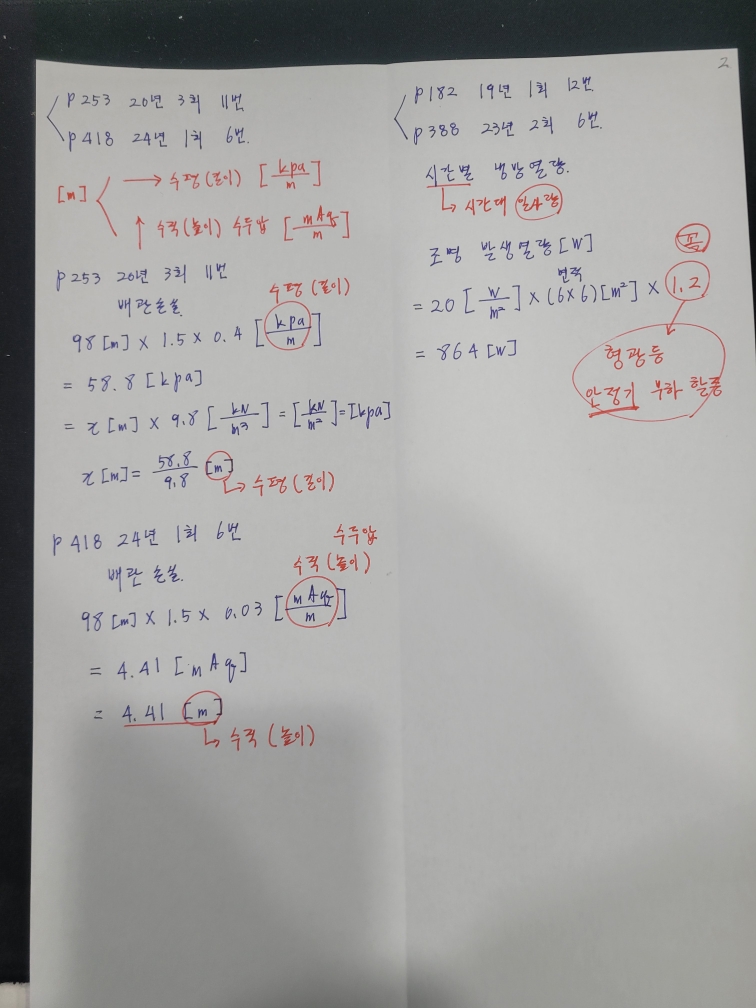 2
p253 20년 3회 11번
p418 24년 1회 6번.
[m] → 수평(길이) [kpa/m]
↑ 수직(높이) 수두압 [mAq/m]
p253 20년 3회 11번
배관손실 수평(길이)
98[m] × 1.5 × 0.4 [kpa/m]
= 58.8 [kpa]
= x[m] × 9.8 [kN/m³] = [kN/m²] = [kpa]
x[m] = 58.8/9.8 [m]
↳ 수평(길이)
p418 24년 1회 6번
수두압
배관 손실. 수직(높이)
98[m] × 1.5 × 0.03 [mAq/m]
= 4.41 [mAq]
= 4.41 [m]
↳ 수직(높이)
p182 19년 1회 12번
p388 23년 2회 6번.
시간별 냉방열량.
↳ 시간대 일사량
조명 발생열량[W] 꼭
면적
= 20 [W/m²] × (6×6)[m²] × 1.2
= 864[W]
형광등
안정기 부하 할증